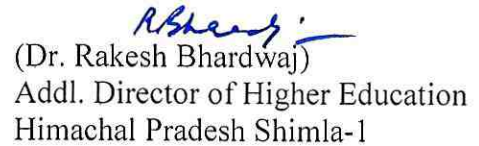 (Dr. Rakesh Bhardwaj)
Addl. Director of Higher Education
Himachal Pradesh Shimla-1